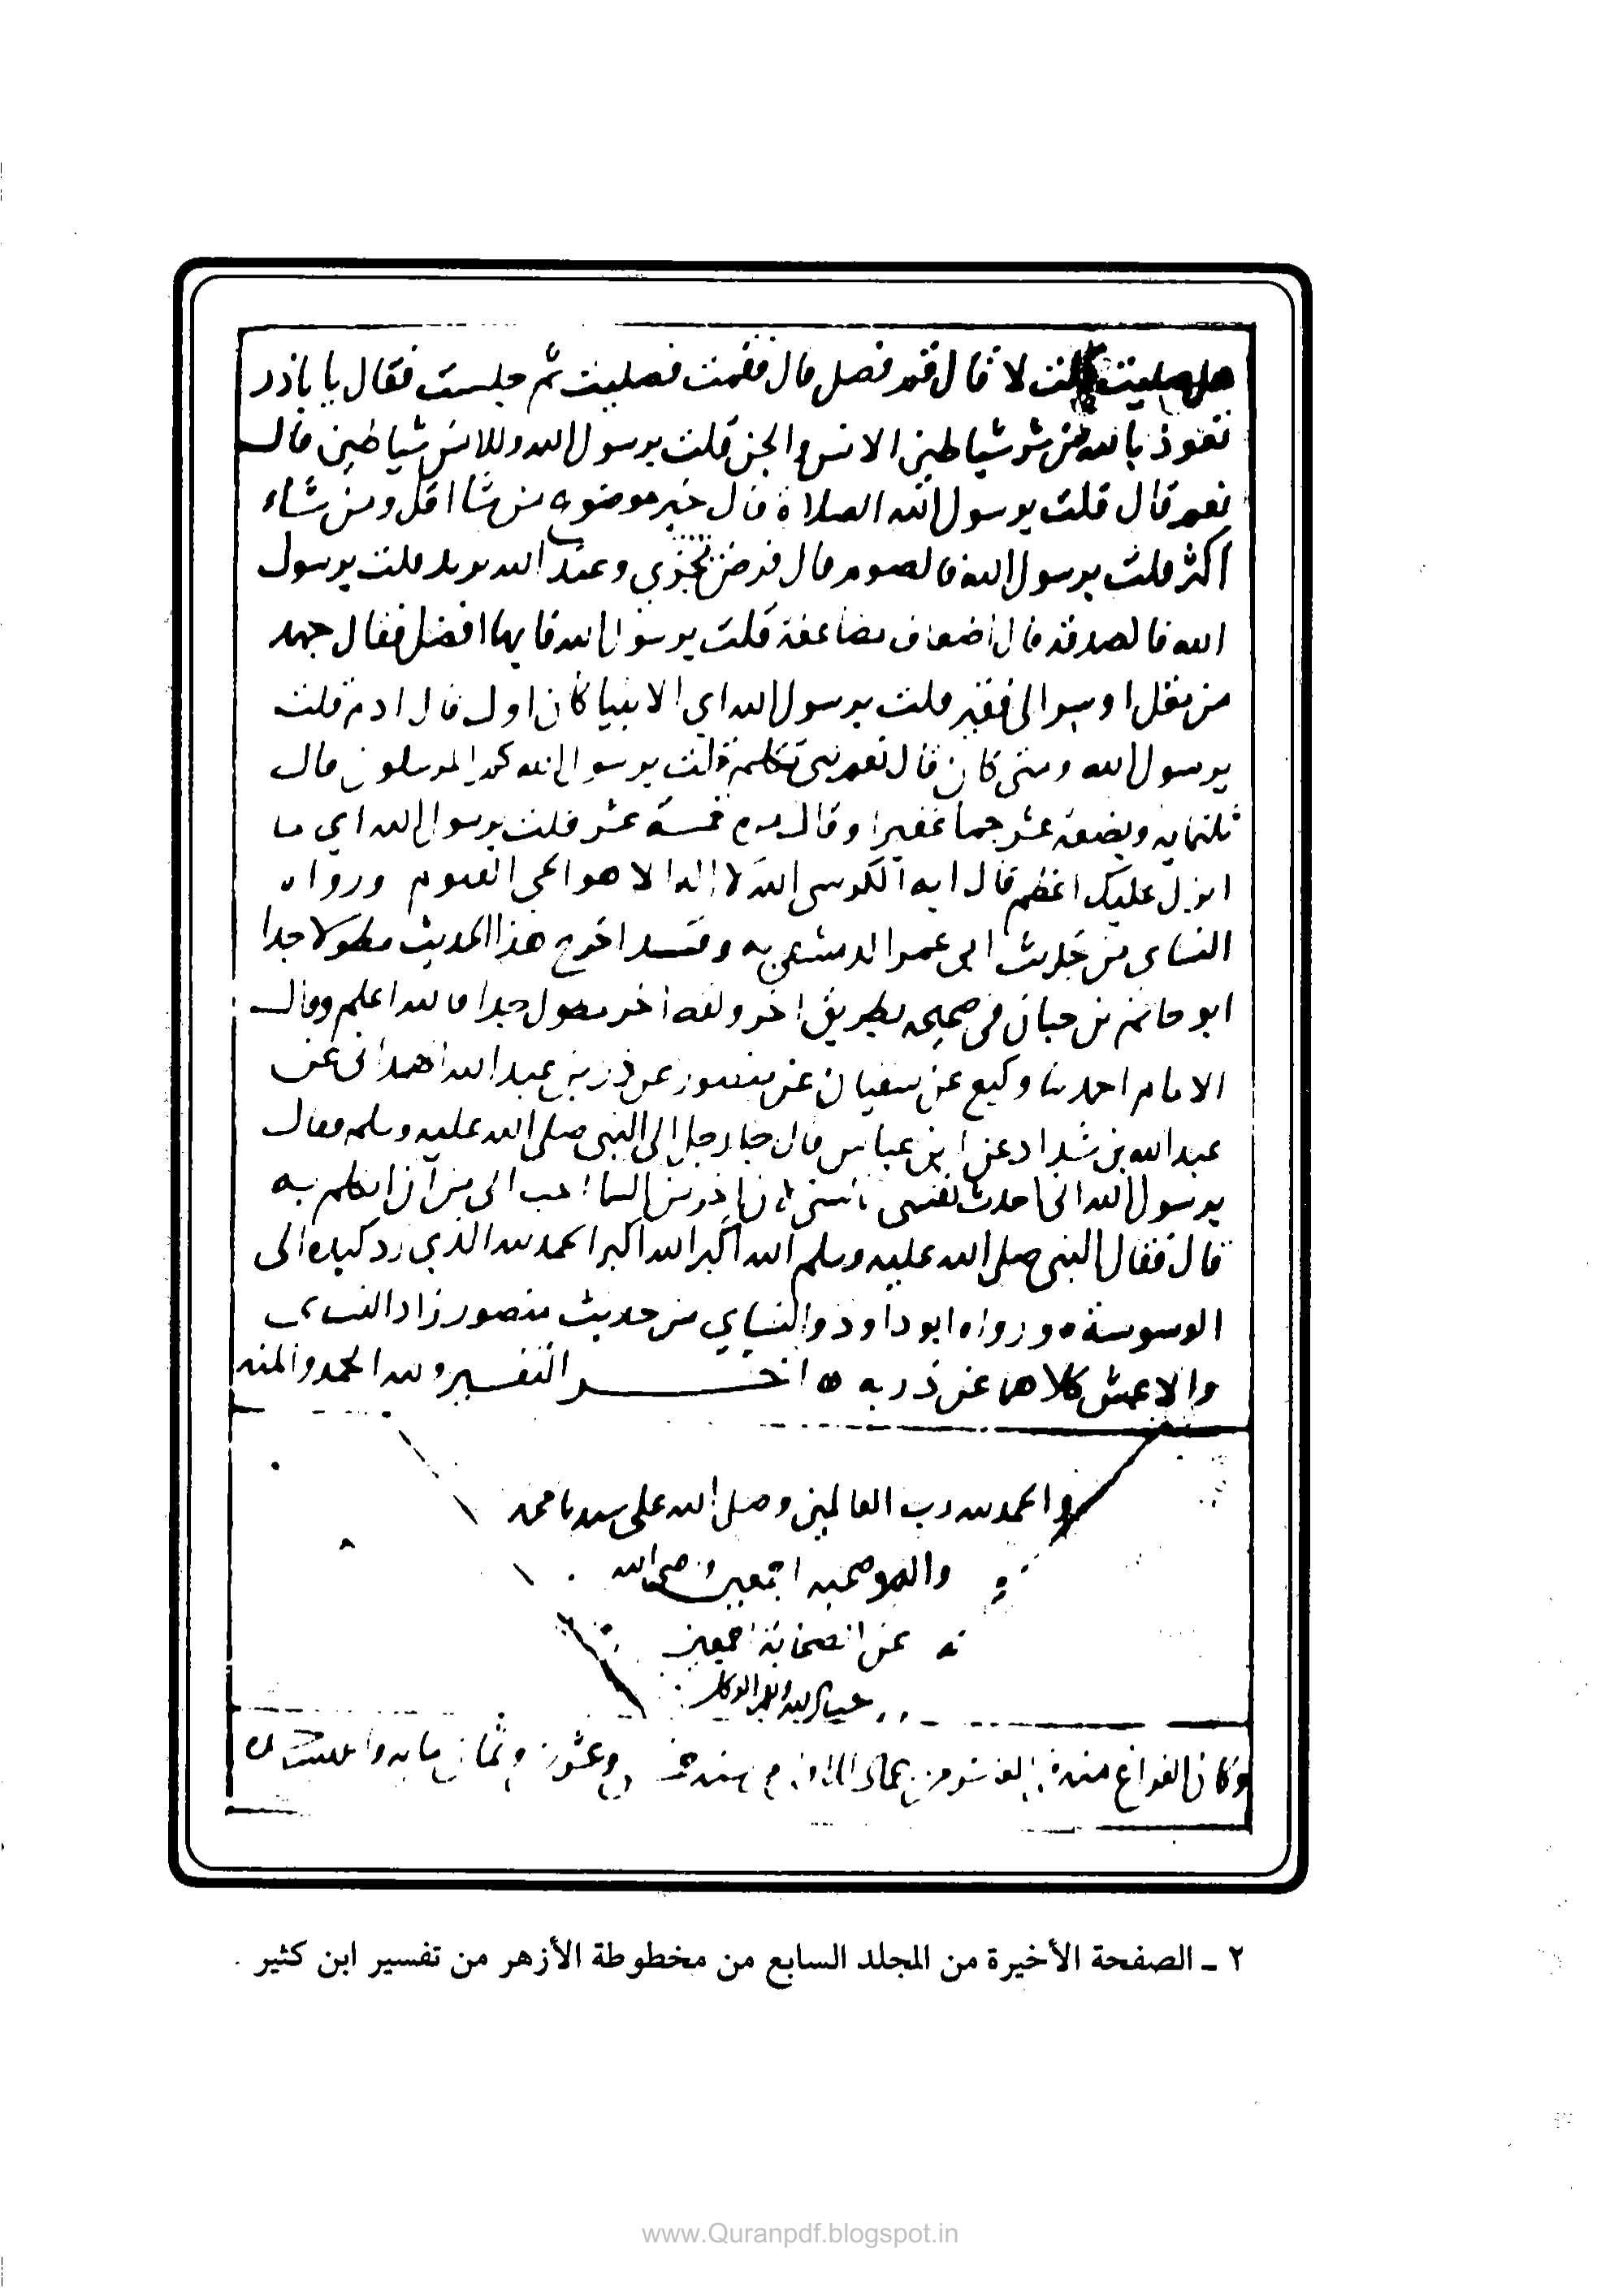 هل صليت قلت لا قال قم فصل قال فقمت فصليت ثم جلست فقال يا باذر
تعوذ بالله من شر شياطين الانس والجن قلت يرسول الله وللانس شياطين قال
نعم قال قلت يرسول الله الصلاة قال خير موضوع من شا اقل ومن شاء
اكثر قلت يرسول الله فالصوم قال فرض مجزي وعند الله مزيد قلت يرسول
الله فالصدقة قال اضعاف مضاعفة قلت يرسول الله فايها افضل فقال جهد
من مقل او سر الى فقير قلت يرسول الله اي الانبيا كان اول قال ادم قلت
يرسول الله ونبي كان قال نعم نبي مكلم قلت يرسول الله كم المرسلون قال
ثلثمايه وبضعة عشر جما غفيرا وقال مرة خمسة عشر قلت يرسول الله اي ما
انزل عليك اعظم قال اية الكرسي الله لا اله الا هو الحي القيوم ورواه
النساي من حديث ابي عمر الدمشقي به وقد اخرج هذا الحديث مطولا جدا
ابو حاتم بن حبان في صحيحه بطريق اخر ولفظ اخر مطول جدا فالله اعلم وقال
الامام احمد ثنا وكيع عن سفيان عن منصور عن ذر بن عبد الله الهمداني عن
عبد الله بن شداد عن ابن عباس قال جا رجل الى النبي صلى الله عليه وسلم فقال
يرسول الله اني احدث نفسي بالشي لان اخر من السما احب الي من ان اتكلم به
قال فقال النبي صلى الله عليه وسلم الله اكبر الله اكبر الحمد لله الذي رد كيده الى
الوسوسة ورواه ابو داود والنساي من حديث منصور زاد النساي
والاعمش كلاهما عن ذر به ه اخر التفسير ولله الحمد والمنه
والحمد لله رب العالمين وصلى الله على سيدنا محمد
واله وصحبه اجمعين ورضي الله
عن الصحابة اجمعين
حسبنا الله ونعم الوكيل
وكان الفراغ منه في العاشر من جمادى سنة خمس وعشرين وثمان مايه
٢ ـ الصفحة الأخيرة من المجلد السابع من مخطوطة الأزهر من تفسير ابن كثير .
www.Quranpdf.blogspot.in